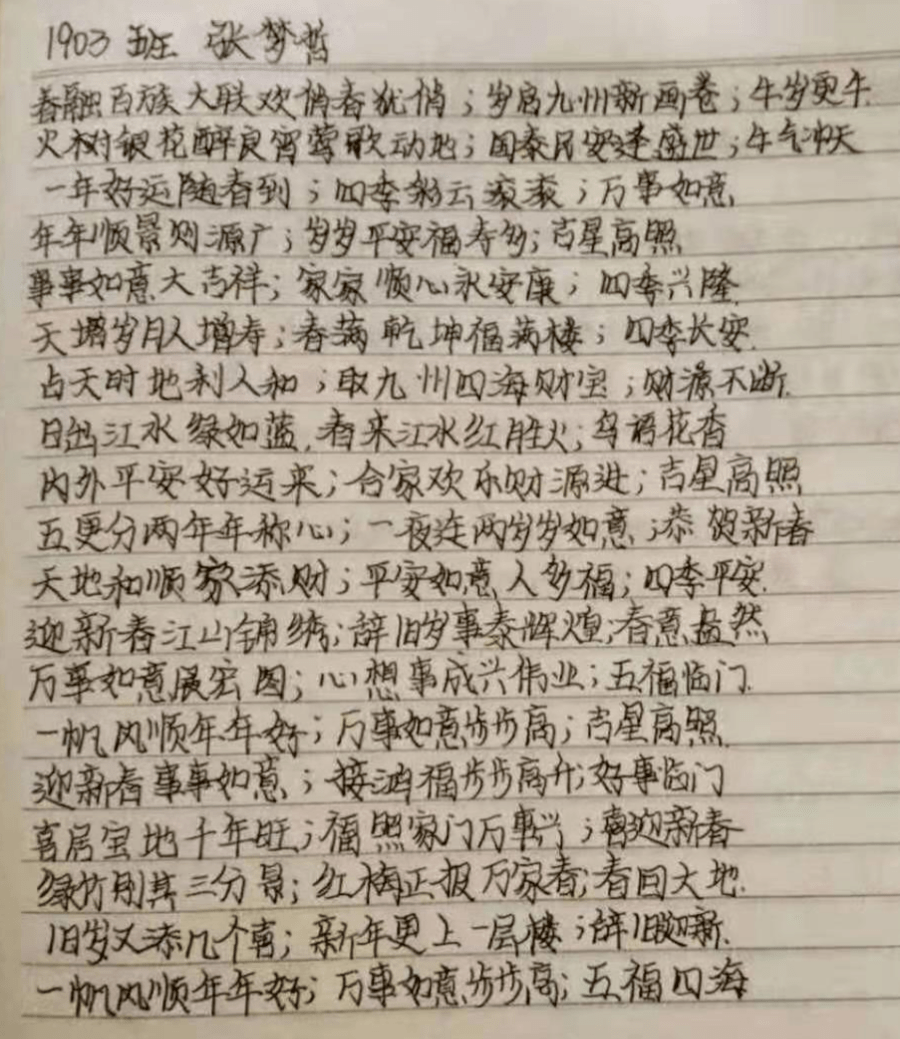 1903班 张梦哲
春融百族大联欢俏春犹俏；岁启九州新画卷；牛岁更牛
火树银花醉良宵莺歌动地；国泰民安逢盛世；牛气冲天
一年好运随春到；四季彩云滚滚；万事如意
年年顺景则源广；岁岁平安福寿多；吉星高照
事事如意大吉祥；家家顺心永安康；四季兴隆
天增岁月人增寿；春满乾坤福满楼；四季长安
占天时地利人和；取九州四海财宝；财源不断
日出江水绿如蓝，春来江水红胜火；鸟语花香
内外平安好运来；合家欢乐财源进；吉星高照
五更分两年年称心；一夜连两岁岁如意；恭贺新春
天地和顺家添财；平安如意人多福；四季平安
迎新春江山锦绣；辞旧岁事泰辉煌；春意盎然
万事如意展宏图；心想事成兴伟业；五福临门
一帆风顺年年好；万事如意步步高；吉星高照
迎新春事事如意；接鸿福步步高升；好事临门
喜居宝地千年旺；福照家门万事兴；喜迎新春
绿竹别其三分景；红梅正报万家春；春回大地
旧岁又添几个喜；新年更上一层楼；辞旧迎新
一帆风顺年年好；万事如意步步高；五福四海